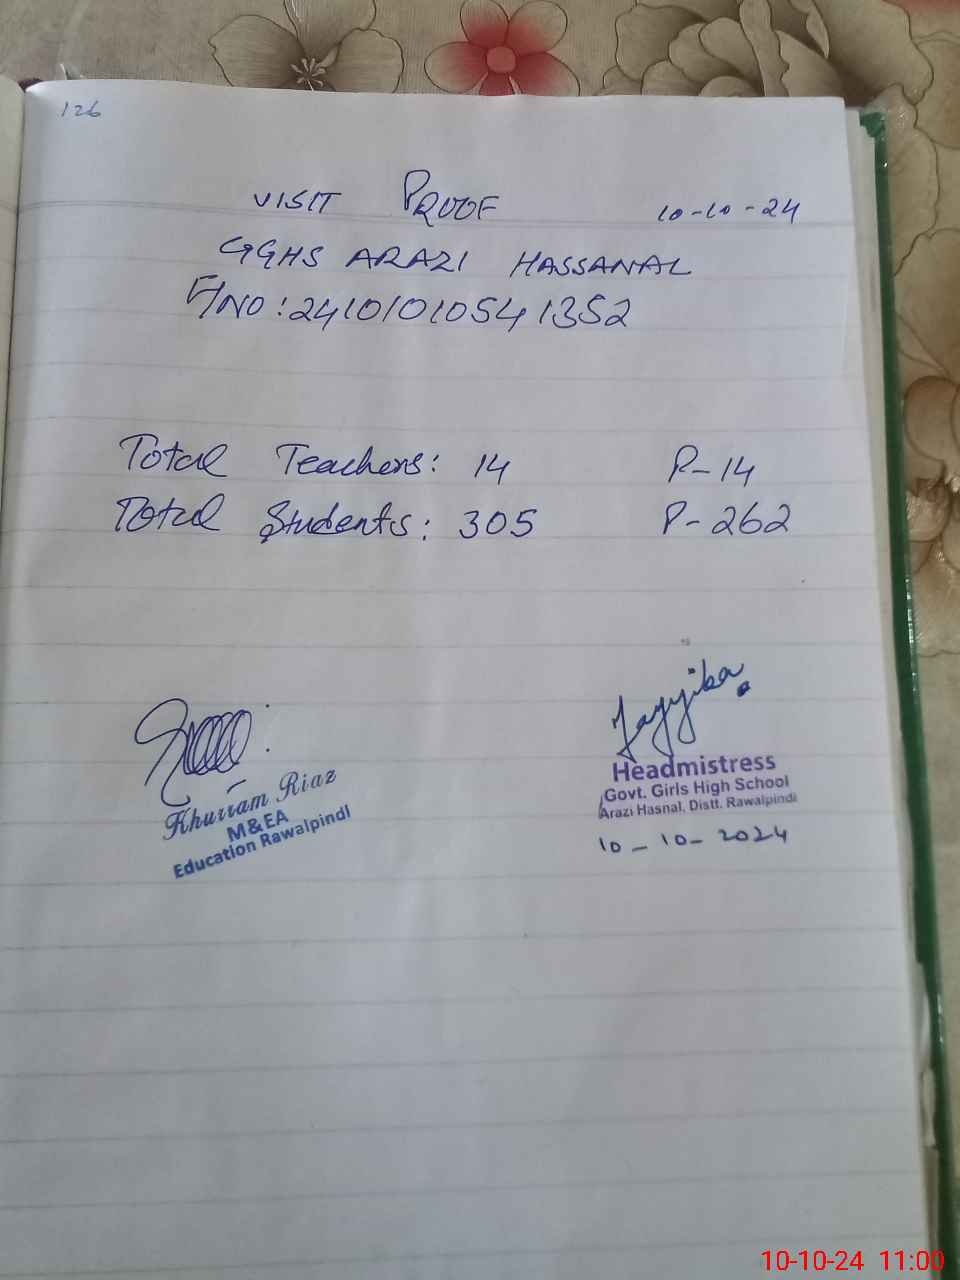 126
VISIT PROOF 10-10-24
GGHS ARAZI HASSANAL
F/NO: 2410101054 1352
Total Teachers: 14 P-14
Total Students: 305 P-262
Khurram Riaz
M&EA
Education Rawalpindi
Headmistress
Govt. Girls High School
Arazi Hasnal, Distt. Rawalpindi
10-10-2024
10-10-24 11:00